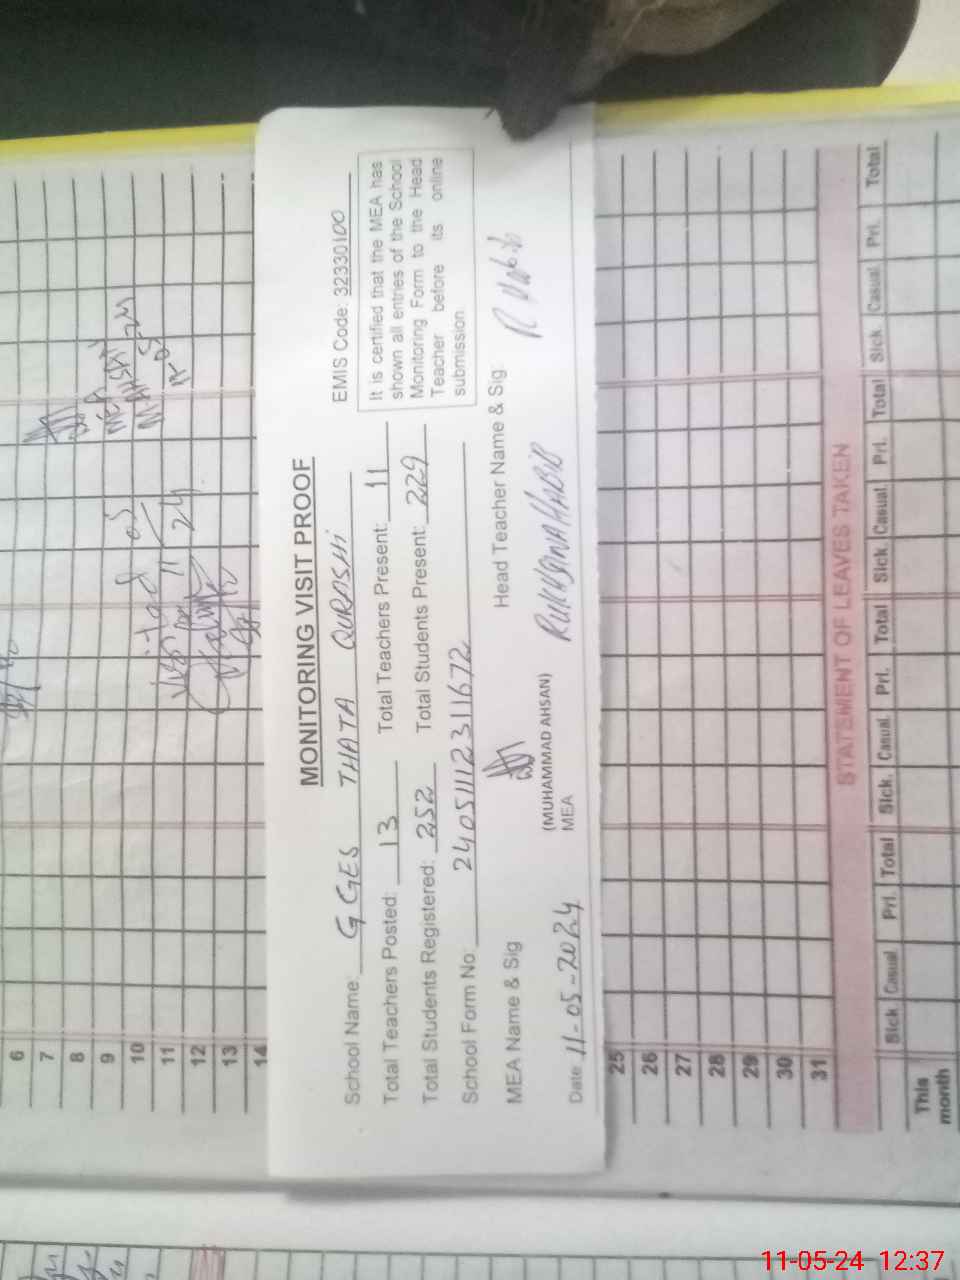 6
7
8
9
10
11
12
13
14
Visited
11 05 24
MEA
M. AHSAN
11-05-24
MONITORING VISIT PROOF
School Name: GGES THATA QURASHI EMIS Code: 32330100
Total Teachers Posted: 13 Total Teachers Present: 11
Total Students Registered: 252 Total Students Present: 229
School Form No: 240511123111672
It is certified that the MEA has
shown all entries of the School
Monitoring Form to the Head
Teacher before its online
submission
MEA Name & Sig Head Teacher Name & Sig
(MUHAMMAD AHSAN)
MEA
RUKHSANA HABIB R Habib
Date 11-05-2024
25
26
27
28
29
30
31
STATEMENT OF LEAVES TAKEN
Sick Casual Prl. Total Sick. Casual Prl. Total Sick Casual. Prl. Total Sick Casual Prl. Total
This
month
11-05-24 12:37